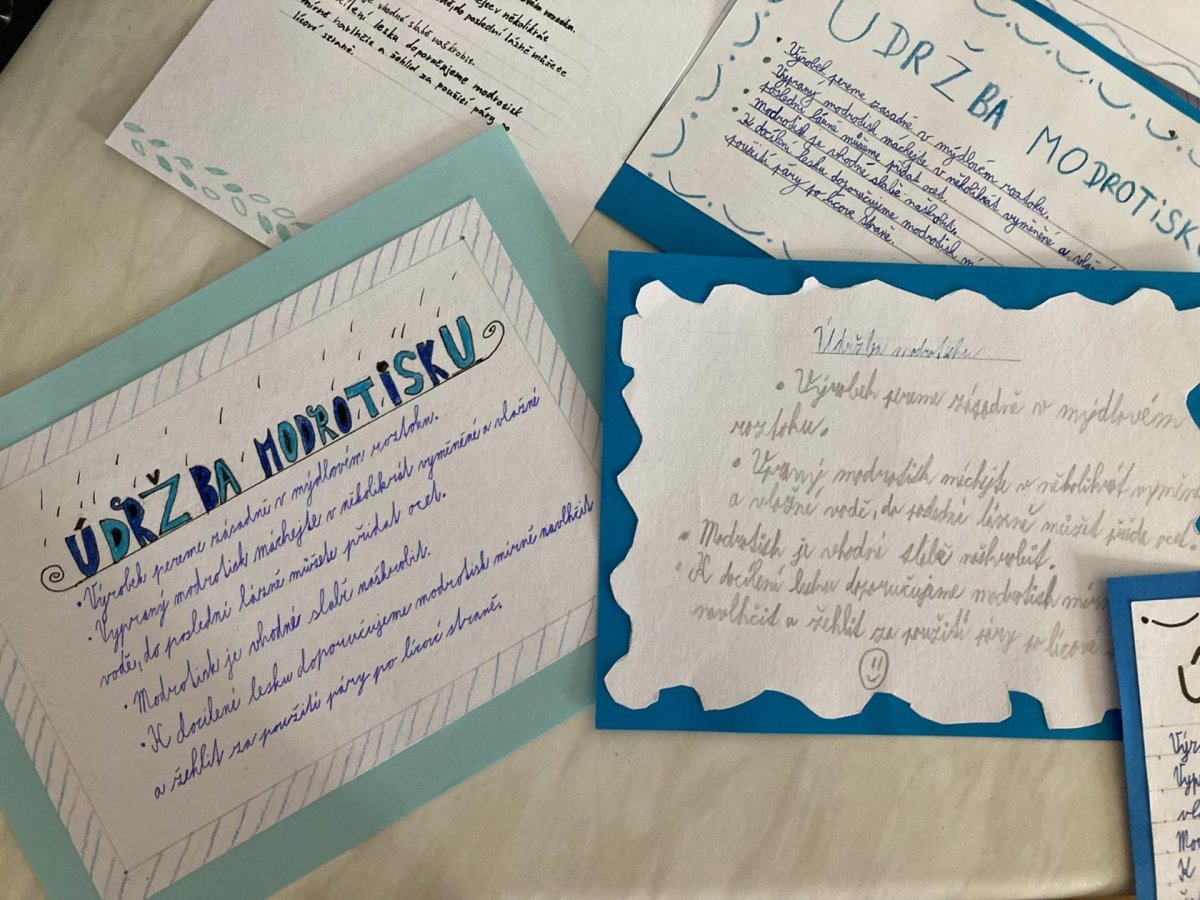 vhodné slabě naškrobit.
lesku doporučujeme modrotisk
mírně navlhčit a žehlit za použití páry
lícové straně.
ÚDRŽBA MODROTISKU
• Výrobek pereme zásadně v mýdlovém roztoku.
• Vypraný modrotisk máchejte v několikrát vyměněné a vlažné
poslední lázně můžeme přidat ocet.
• Modrotisk je vhodné slabě naškrobit.
• K docílení lesku doporučujeme modrotisk
použití páry po lícové straně.
ÚDRŽBA MODROTISKU
• Výrobek pereme zásadně v mýdlovém roztoku.
• Vypraný modrotisk máchejte v několikrát vyměněné a vlažné
vodě, do poslední lázně můžete přidat ocet.
• Modrotisk je vhodné slabě naškrobit.
• K docílení lesku doporučujeme modrotisk mírně navlhčit
a žehlit za použití páry po lícové straně.
Údržba modrotisku
• Výrobek pereme zásadně v mýdlovém
roztoku.
• Vpraný modrotisk máchejte v několikrát
a vlažné vodě, do
• Modrotisk je vhodné slabě naškrobit.
• K docílení lesku doporučujeme modrotisk
navlhčit a žehlit za použití páry po lícové